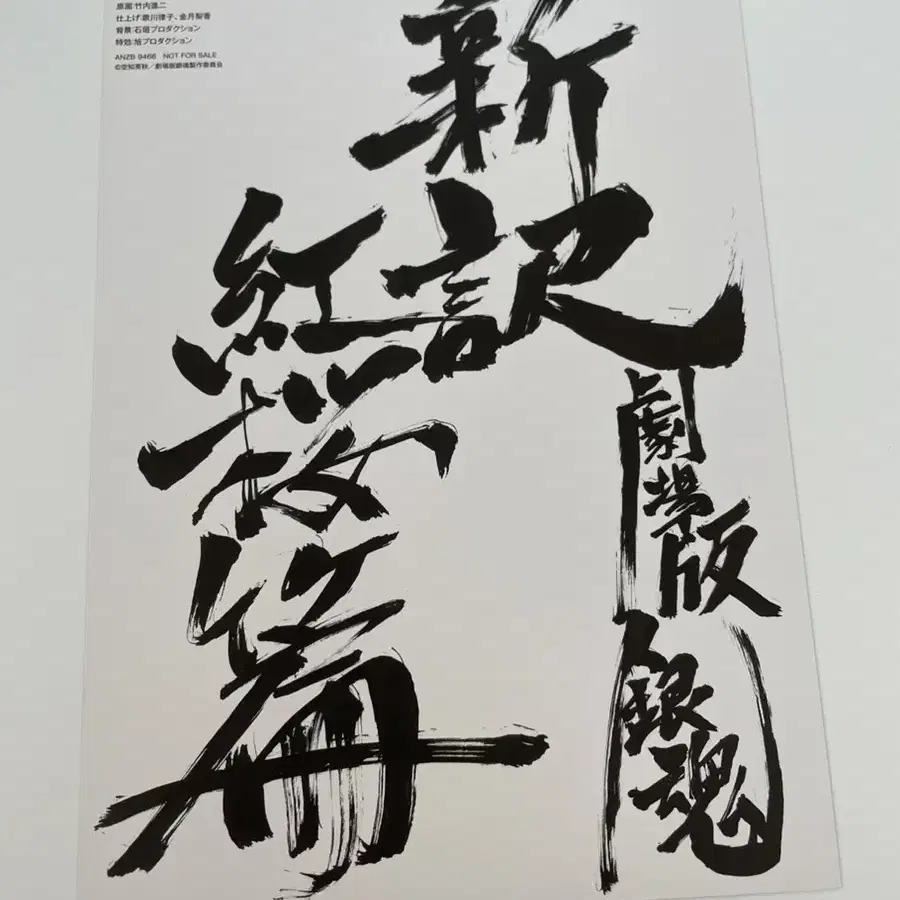 原画:竹内進二
仕上げ:歌川律子、金月梨香
背景:石垣プロダクション
特効:旭プロダクション
ANZB 9466 NOT FOR SALE
©空知英秋/劇場版銀魂製作委員会
劇場版
銀魂
新訳
紅桜篇